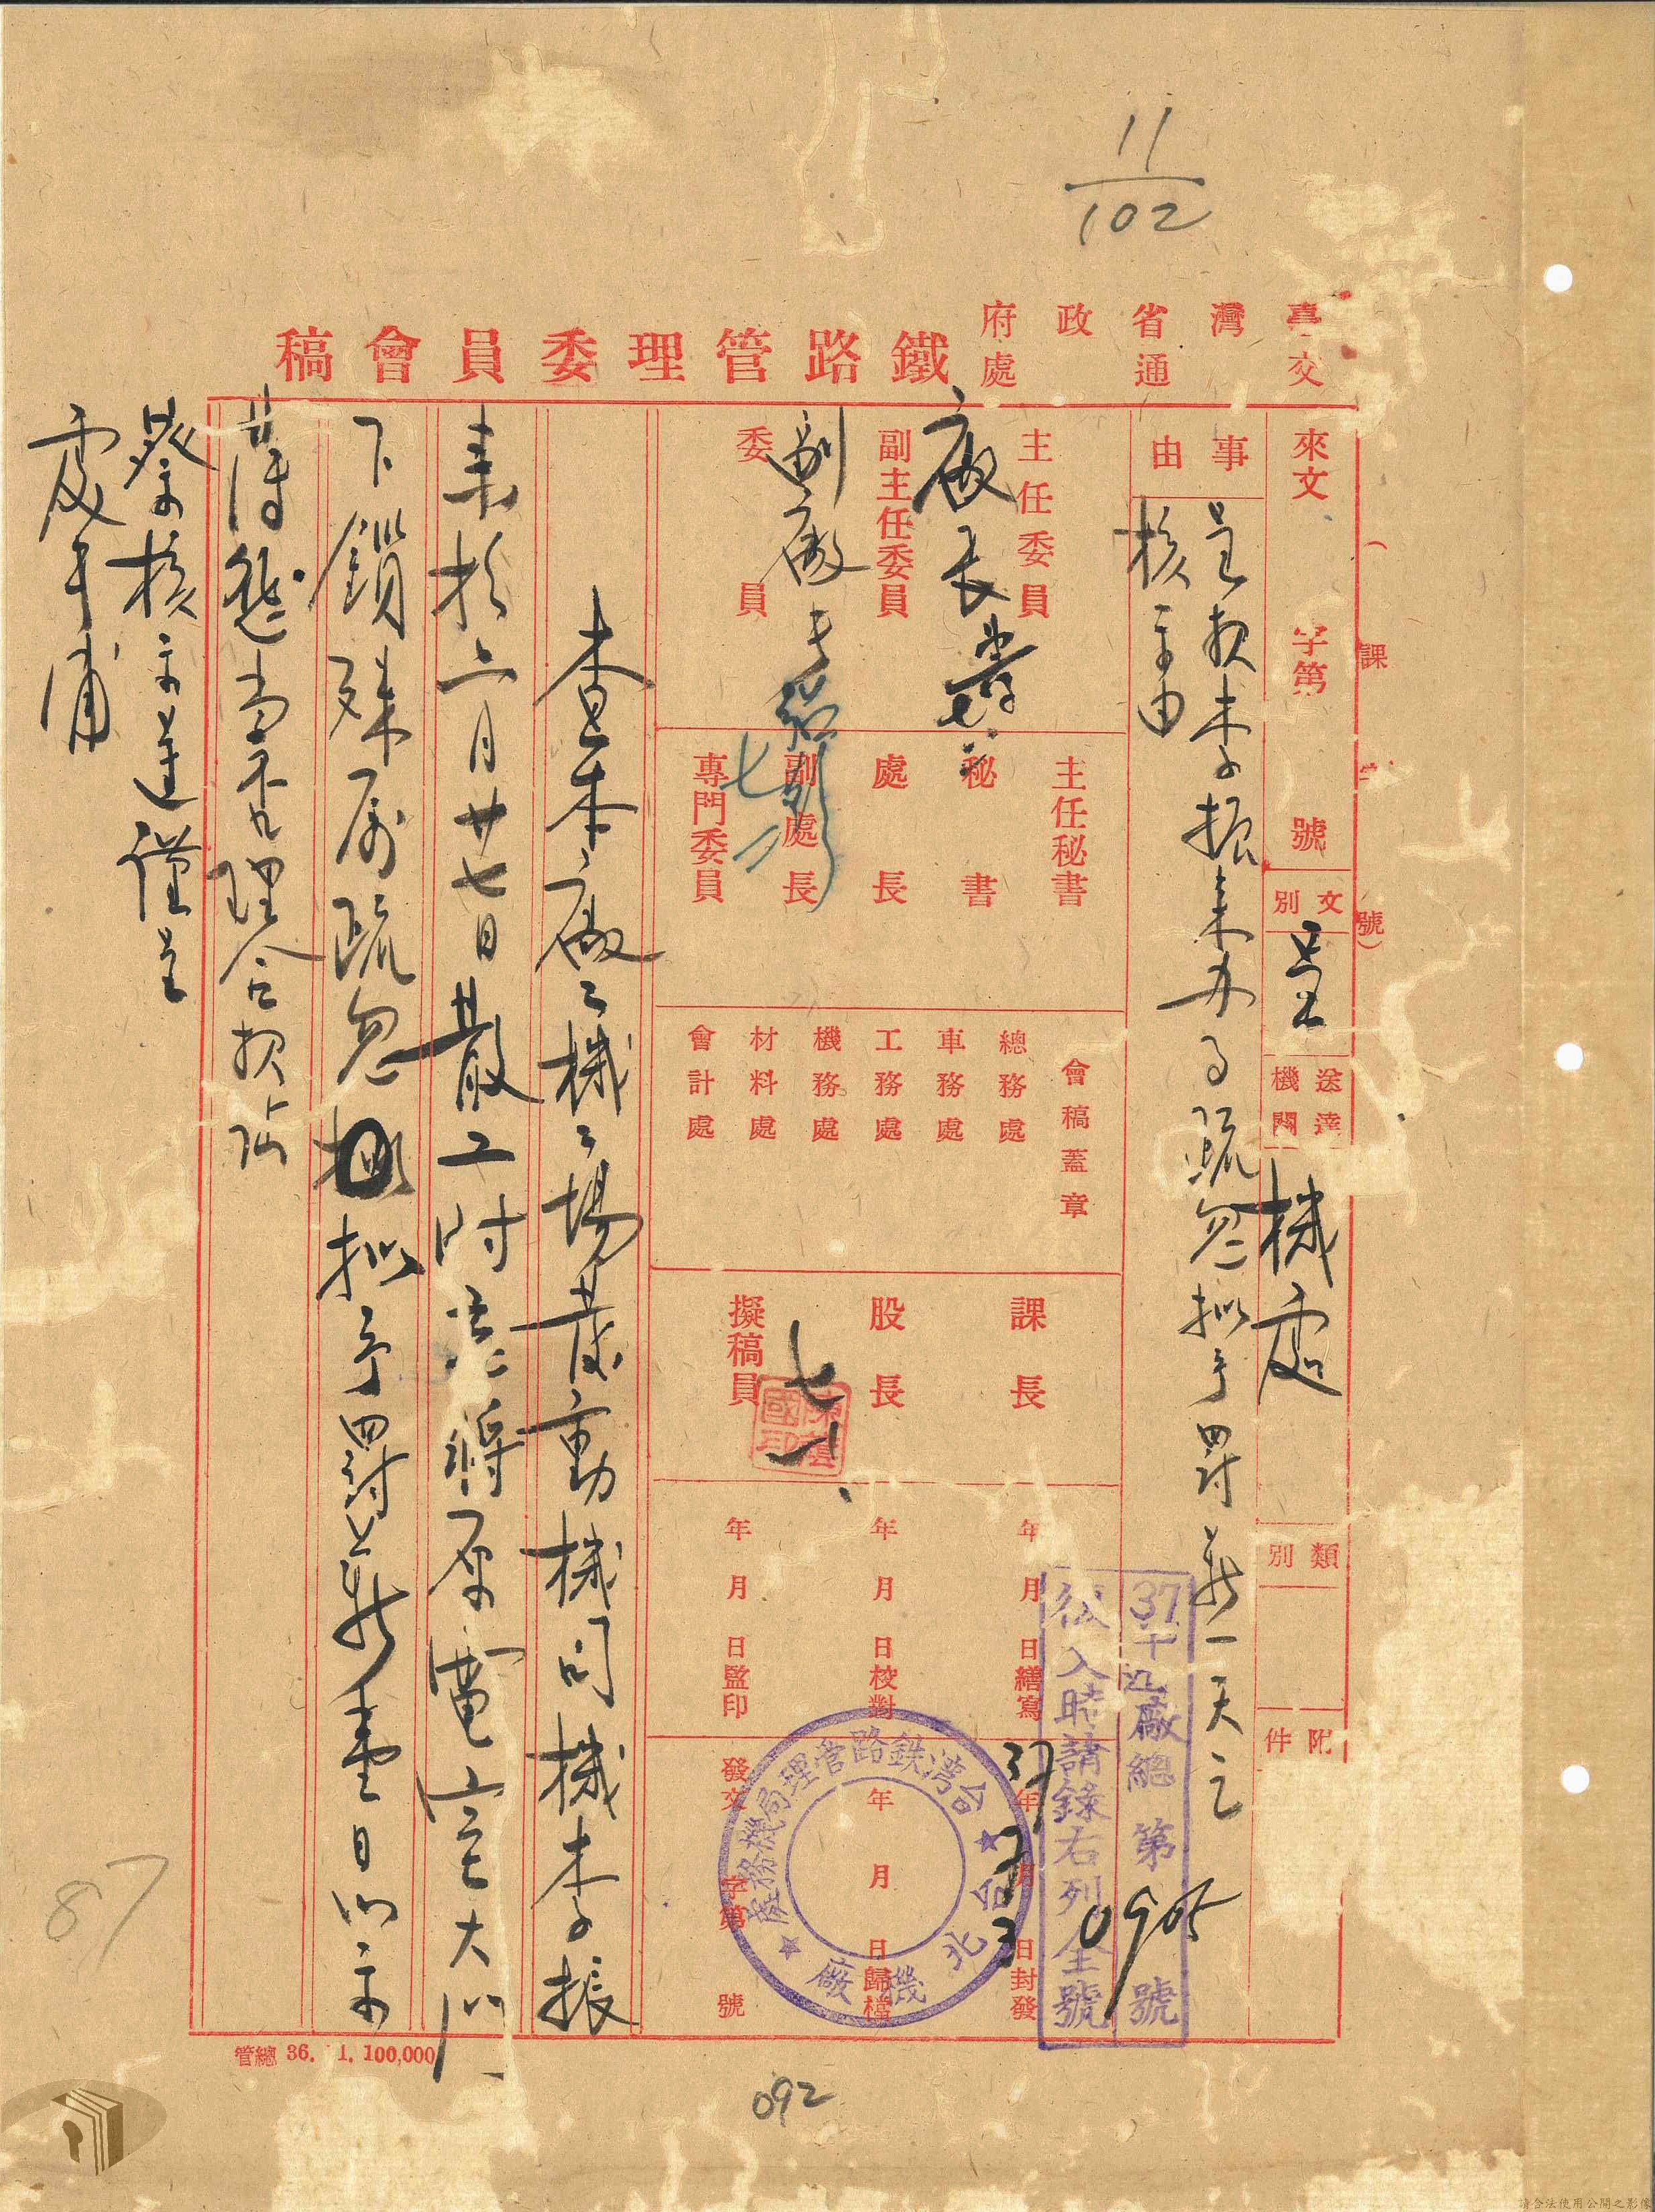 11
102
臺灣省政府
交通處
鐵路管理委員會稿
(課 字 號)
來文 字第 號
文別 呈
送達機關 機處
類別
附件
事由
呈報李振來办事疏忽拟予罰薪一天乞
核示由
主任委員
副主任委員
委員
廠長
副廠長
七 二
主任秘書
秘書
處長
副處長
專門委員
會稿蓋章
總務處
車務處
工務處
機務處
材料處
會計處
課長
股長
擬稿員
七 一
年 月 日繕寫
年 月 日校對
年 月 日監印
37年 7月 3日封發
年 月 日歸檔
發文 字第 號
37 廠總 第 0905 號
後入時請錄右列全號
台灣鉄路管理局機務處
台北機廠
查本廠工機工場發動機司機李振
來於六月廿七日散工時忘將原電室大門
下鎖殊屬疏忽拟予罰薪壹日以示
薄懲當否理合報請
鑒核示遵謹呈
處長
管總 36. 1. 100,000
092
87
請合法使用公開之影像